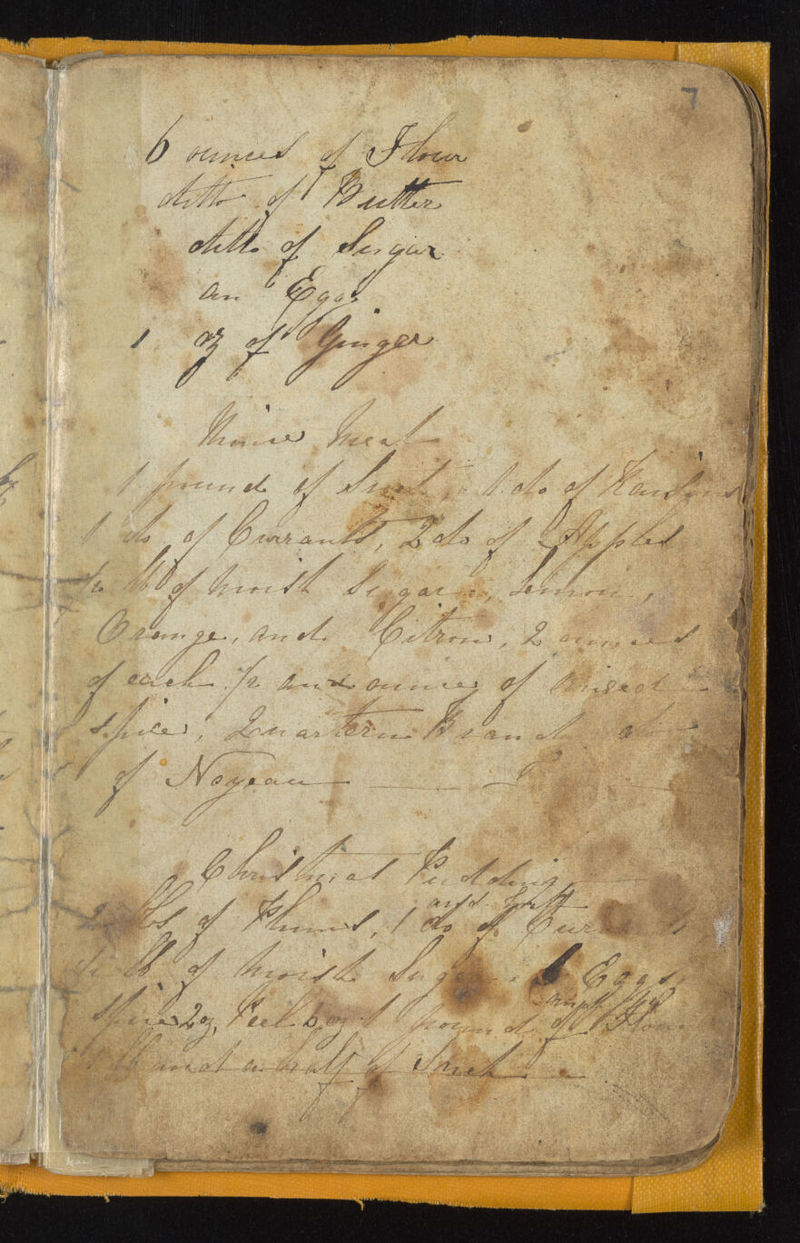 7
6 ounces of Flour
ditto of Butter
ditto of Sugar
an Egg
1 oz of Ginger
Mince Meat
1 pound of Suet, 1 do of Raisins
1 do of Currants, 2 do of Apples
lb of moist Sugar, Lemon,
Orange, and Citron, 2 ounces
of each 1/2 an ounce of mixed
spice, 2 quartern Brandy do
of Noyeau
Christmas Pudding
and half
2 lbs of Plums, 1 do of Cur
lb of moist Sugar 8 Eggs
spice 2oz, Peel 6oz 1 pound of Flour
lb and a half of Suet